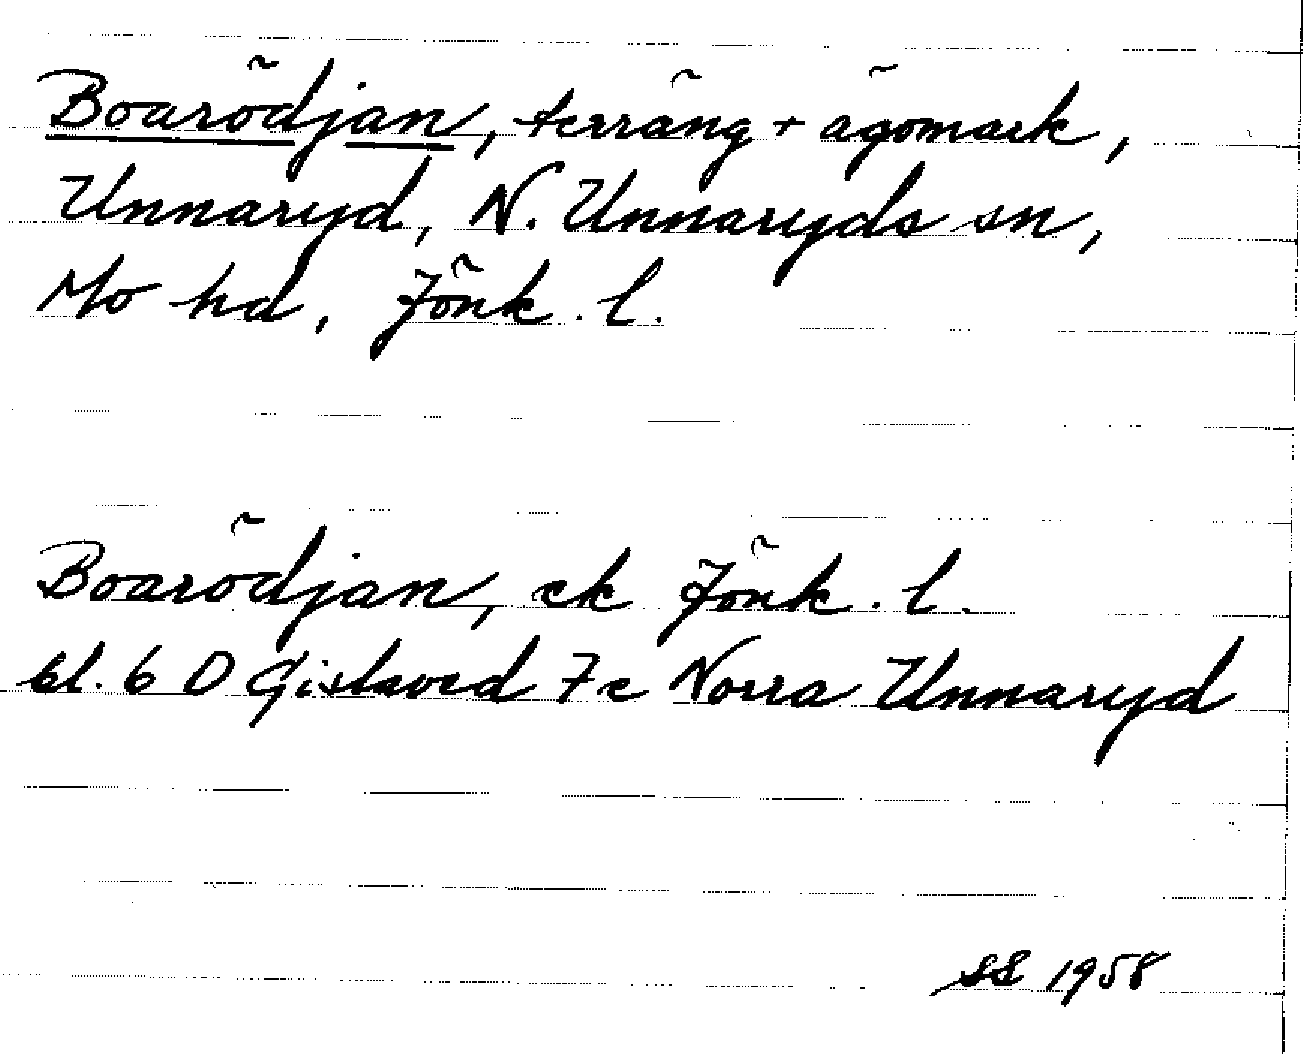 Boarödjan, terräng + ägomark,
Unnaryd, N. Unnaryds sn,
Mo hd, Jönk. l.
Boarödjan, ek Jönk. l.
bl. 6 D Gislaved 7c Norra Unnaryd
SS 1958